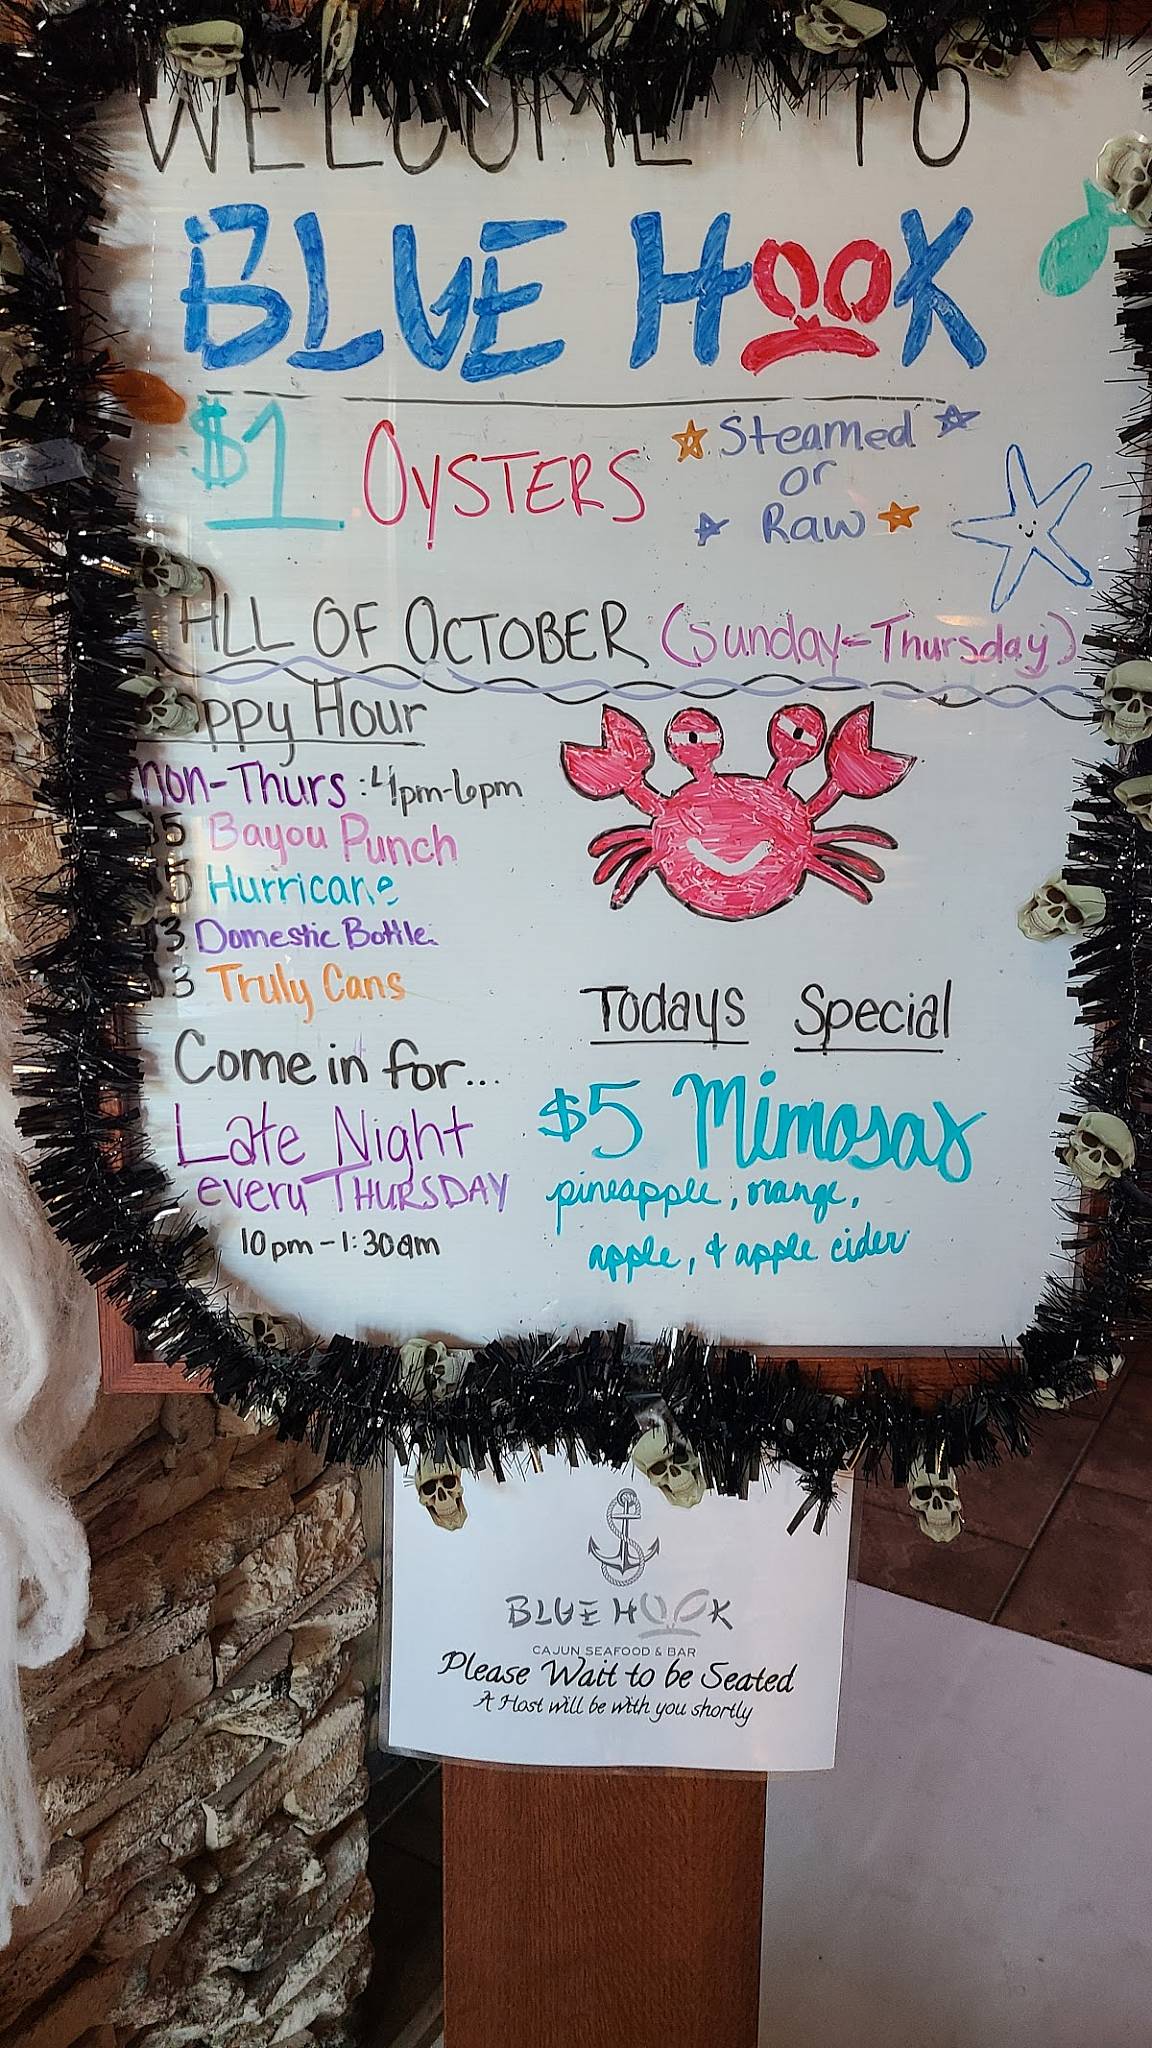 WELCOME TO
BLUE HOOK
$1 OYSTERS
Steamed
or
Raw
ALL OF OCTOBER (Sunday-Thursday)
ppy Hour
mon-Thurs: 4pm-6pm
$5 Bayou Punch
5 Hurricane
$3 Domestic Bottle
3 Truly Cans
Come in for...
Late Night
every THURSDAY
10pm-1:30am
Todays Special
$5 Mimosas
pineapple, orange,
apple, & apple cider
BLUE HOOK
CAJUN SEAFOOD & BAR
Please Wait to be Seated
A Host will be with you shortly